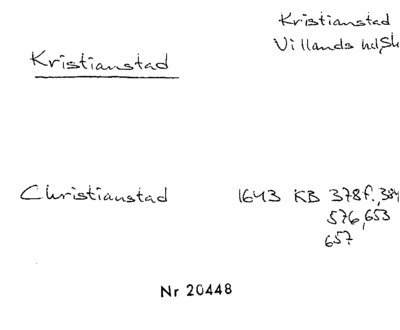 Kristianstad
Villands hd, Sk
Kristianstad
Christianstad 1643 KB 378f., 384
576, 653
657
Nr 20448